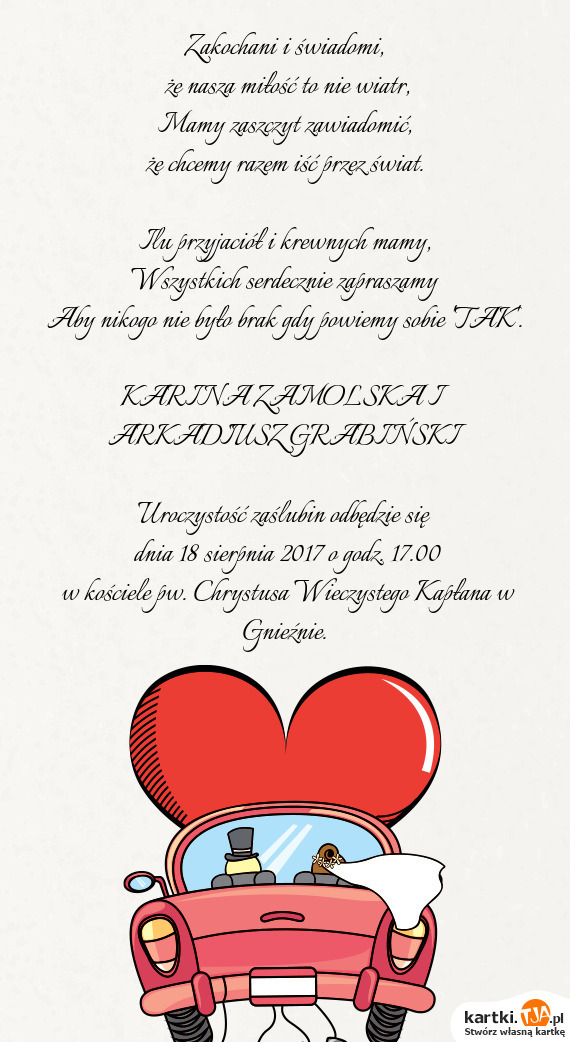 Zakochani i świadomi,
że nasza miłość to nie wiatr,
Mamy zaszczyt zawiadomić,
że chcemy razem iść przez świat.
Ilu przyjaciół i krewnych mamy,
Wszystkich serdecznie zapraszamy
Aby nikogo nie było brak gdy powiemy sobie 'TAK'.
KARINA ZAMOLSKA I
ARKADIUSZ GRABIŃSKI
Uroczystość zaślubin odbędzie się
dnia 18 sierpnia 2017 o godz. 17.00
w kościele pw. Chrystusa Wieczystego Kapłana w
Gnieźnie.
kartki.TJA.pl
Stwórz własną kartkę